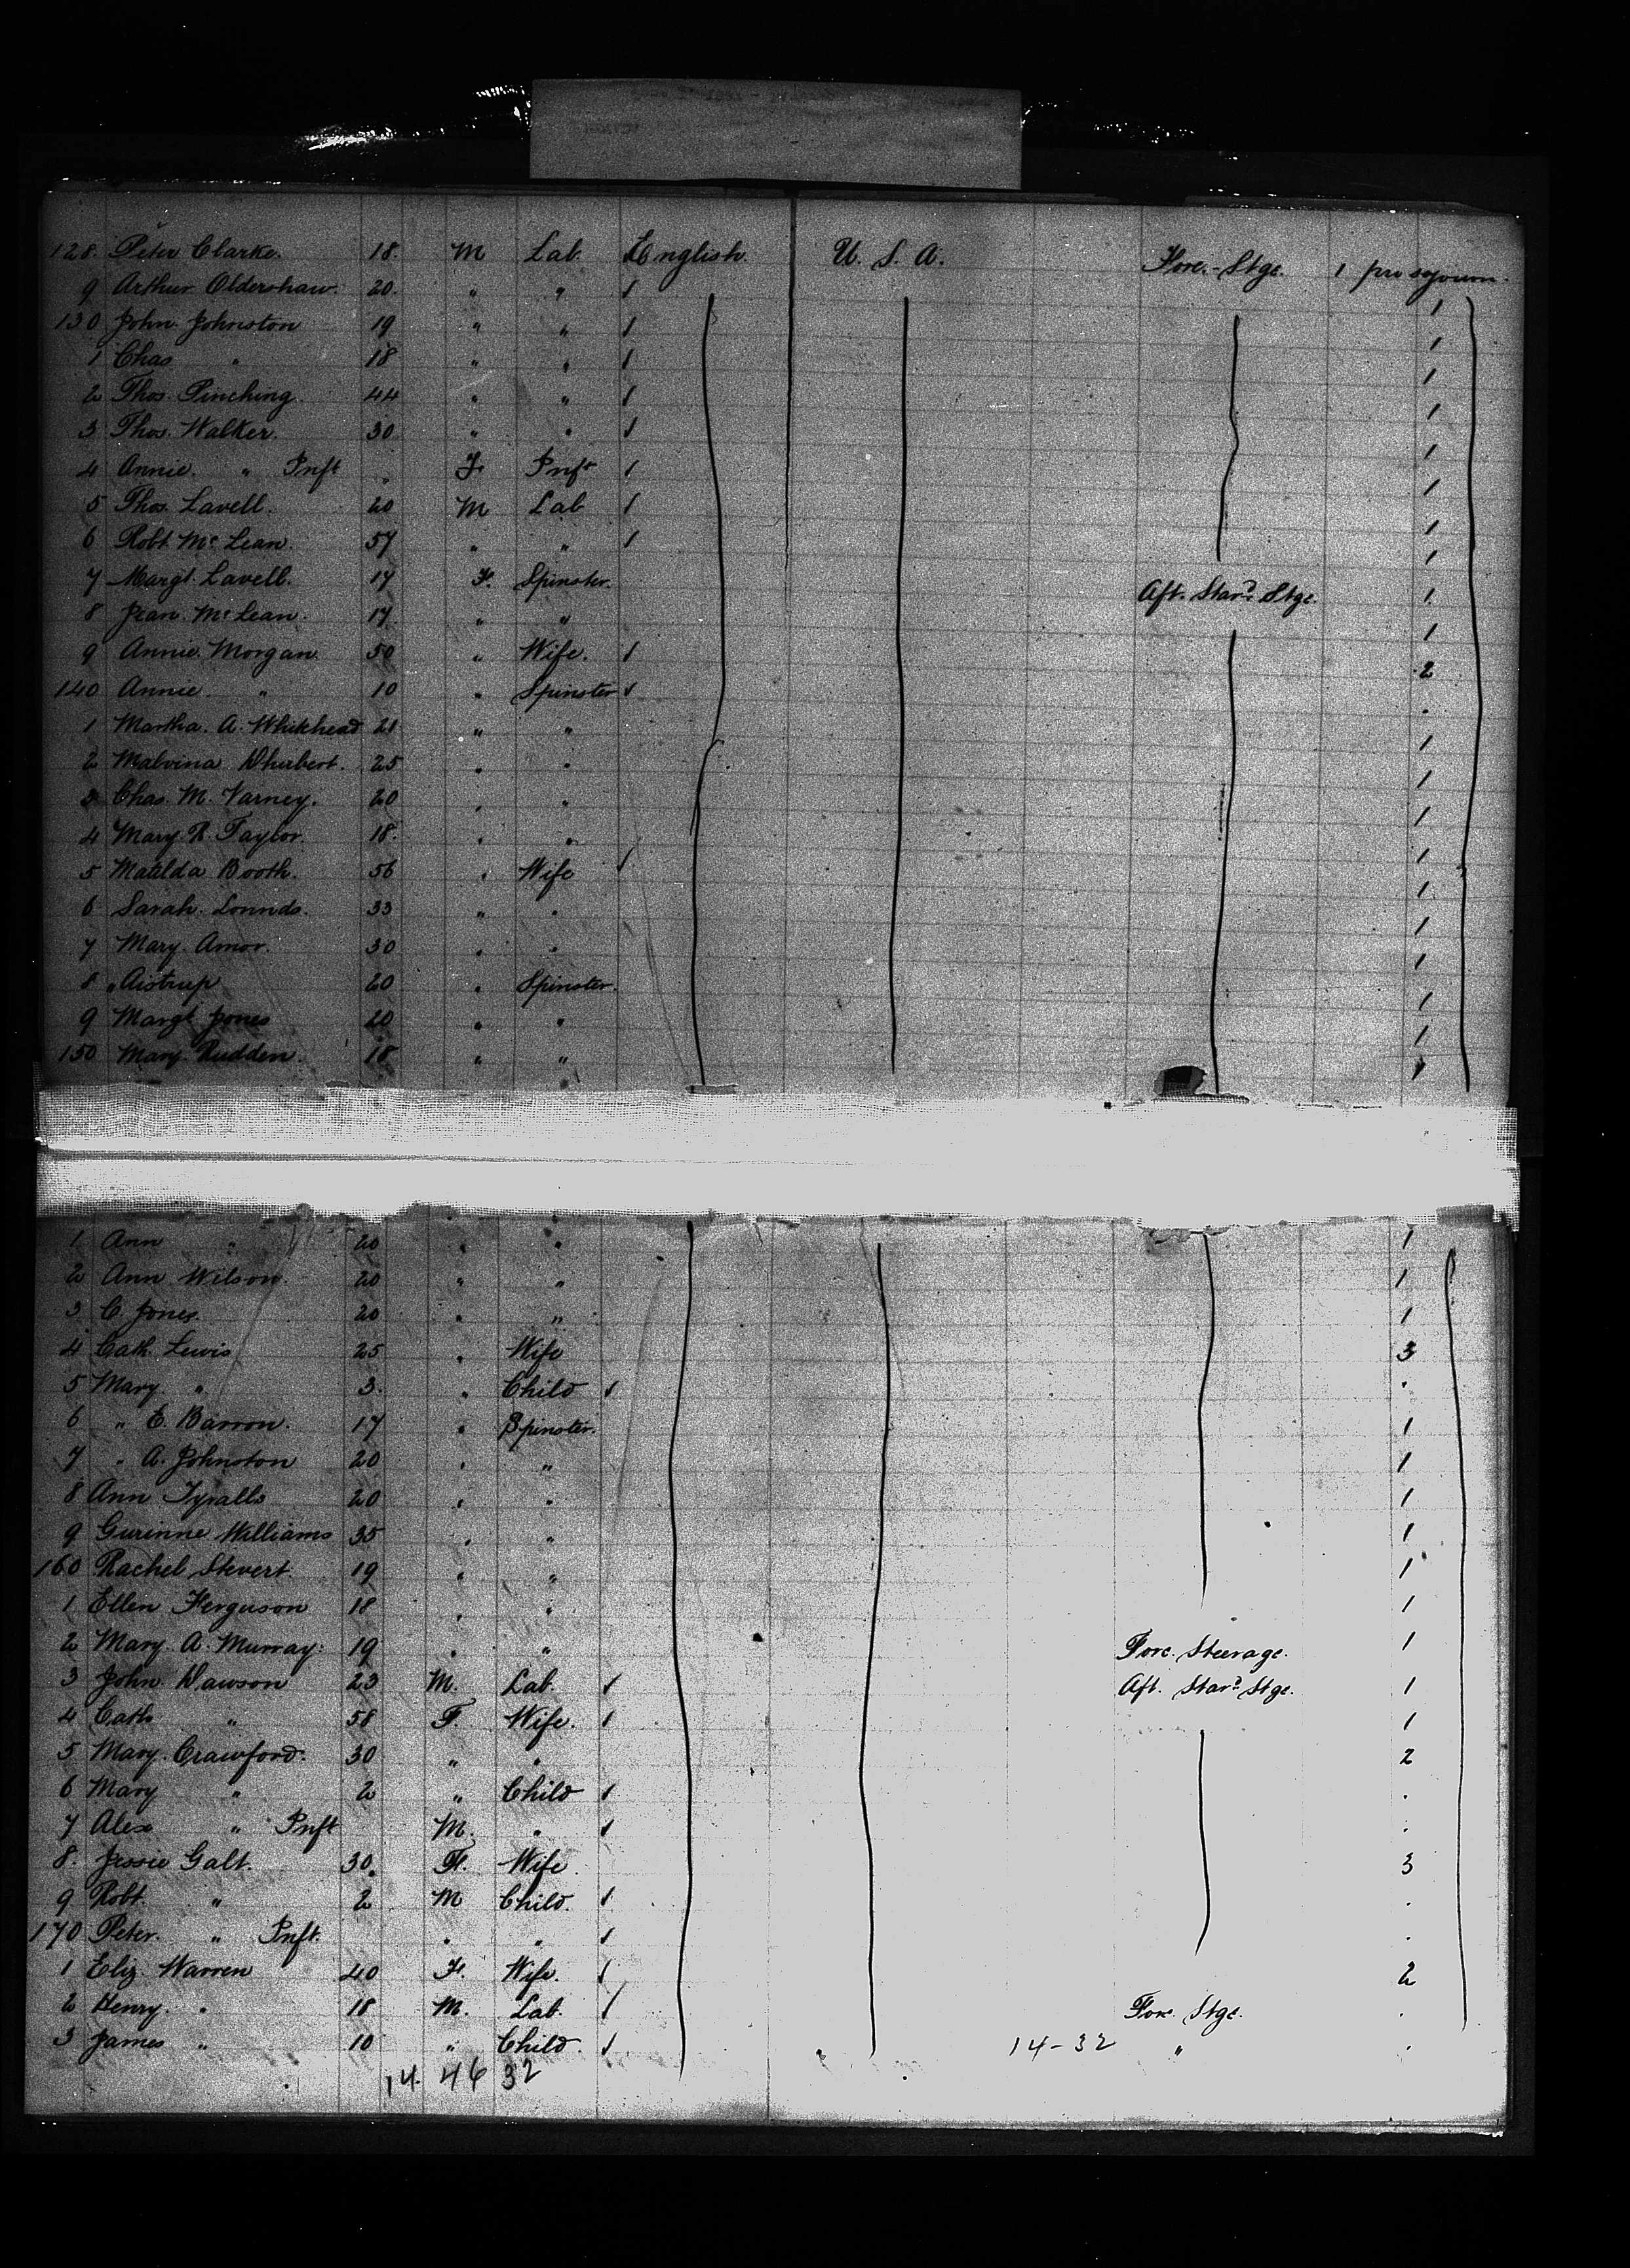 128. Peter Clarke. 18. M Lab. English. U. S. A. Fore. - Stge. 1 pro sojourn.
9 Arthur Oldershaw. 20. " " 1
130 John Johnston 19 " " 1
1 Chas " 18 " " 1
2 Thos. Pinching 44 " " 1
3 Thos. Walker. 30 " " 1
4 Annie. " Inft " F. Inft 1
5 Thos. Lavell. 20 M Lab 1
6 Robt. Mc Lean. 57 " " 1
7 Margt. Lavell. 17 F. Spinster. Aft. Star? Stge. 1
8 Jean. Mc Lean. 17. " " 1
9 Annie. Morgan. 50 " Wife. 2
140 Annie. " 10 " Spinster .
1 Martha. A. Whitehead 21 " " 1
2 Malvina 25 " " 1
3 Chas. M. Varney. 20 " " 1
4 Mary. R. Taylor. 18. " " 1
5 Matilda Booth. 56 " Wife 1
6 Sarah. 33 " " 1
7 Mary. Amor. 30 " " 1
8 " Aistrup 20 " Spinster. 1
9 Margt. Jones 20 " " 1
150 Mary. Rudden. 18 " " 1
1 Ann " 20 " " 1
2 Ann Wilson. 20 " " 1
3 C. Jones. 20 " " 1
4 Cath. Lewis 25 " Wife 3
5 Mary " 3. " Child .
6 " E. Barron. 17 " Spinster. 1
7 " A. Johnston 20 " " 1
8 Ann 20 " " 1
9 Williams 35 " " 1
160 Rachel Stevert. 19 " " 1
1 Ellen Ferguson 18 " " 1
2 Mary. A. Murray. 19 " " Fore. Steerage. 1
3 John Dawson 23 M. Lab. Aft. Star? Stge. 1
4 Cath " 58 F. Wife. 1
5 Mary. Crawford. 30 " " 2
6 Mary " 2 " Child .
7 Alex " Inft M. " .
8. Jessie Galt. 30. F. Wife 3
9 Robt. " 2 M Child. .
170 Peter. " Inft. " " .
1 Eliz. Warren 40 F. Wife. 2
2 Henry. " 18 M. Lab. Fore. Stge. .
3 James " 10 " Child. 14-32 " .
14. 46 32